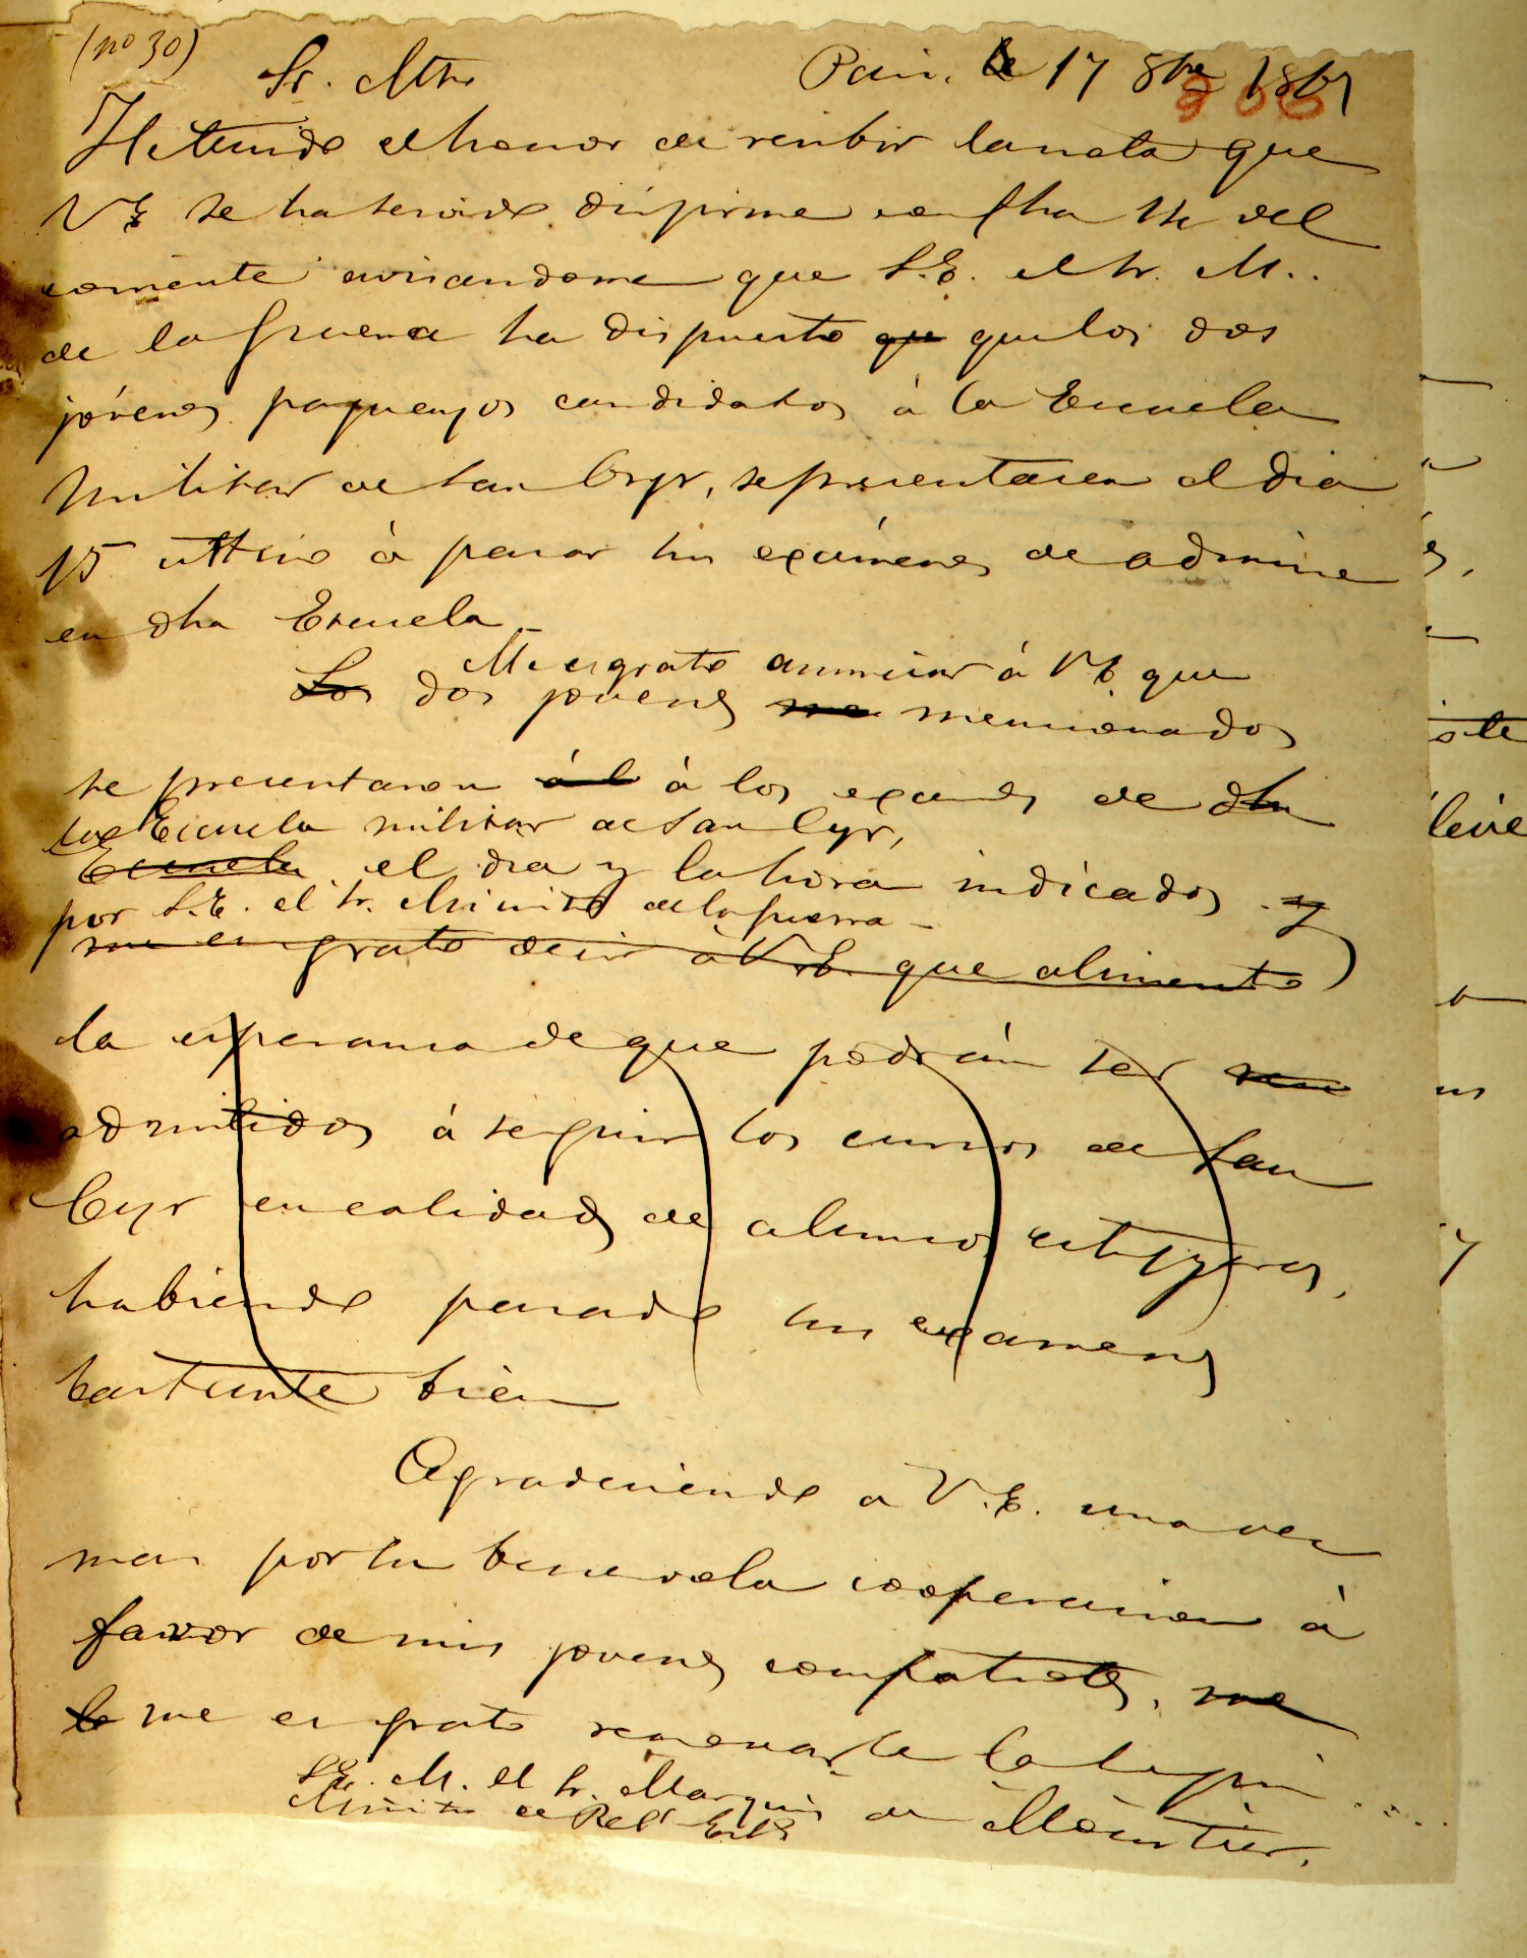 (no 30)
Sr. Mtro Paris, le 17 8bre 1867
306
He tenido el honor de recibir la nota que
VE se ha servido dirijirme con fha 14 del
corriente avisandome que S.E. el Sr. M..
de la Guerra ha dispuesto que que los dos
jóvenes paraguayos candidatos á la Escuela
Militar de San Cyr, se presentasen el dia
15 á pasar sus exámenes de admision
en dha Escuela_
Me es grato anunciar á VE. que
Los dos jovenes me mencionados
se presentaron á l á los examenes de dha
la Escuela militar de San Cyr,
Escuela el dia y la hora indicados y
por S.E. el Sr. Ministro de la Guerra_
me es grato decir a V.E. que alimento
la esperanza de que podrán ser
admitidos á seguir los cursos de San
Cyr en calidad de alumnos estrangeros,
habiendo pasado sus examenes
bastante bien
Agradeciendo a V.E. una vez
mas por su benevola cooperacion á
favor de mis jovenes compatriotas, me
le me es grato renovarle la segur.....
S.E. M. el Sr. Marquis de Moustier.
Ministro de Rels Exts